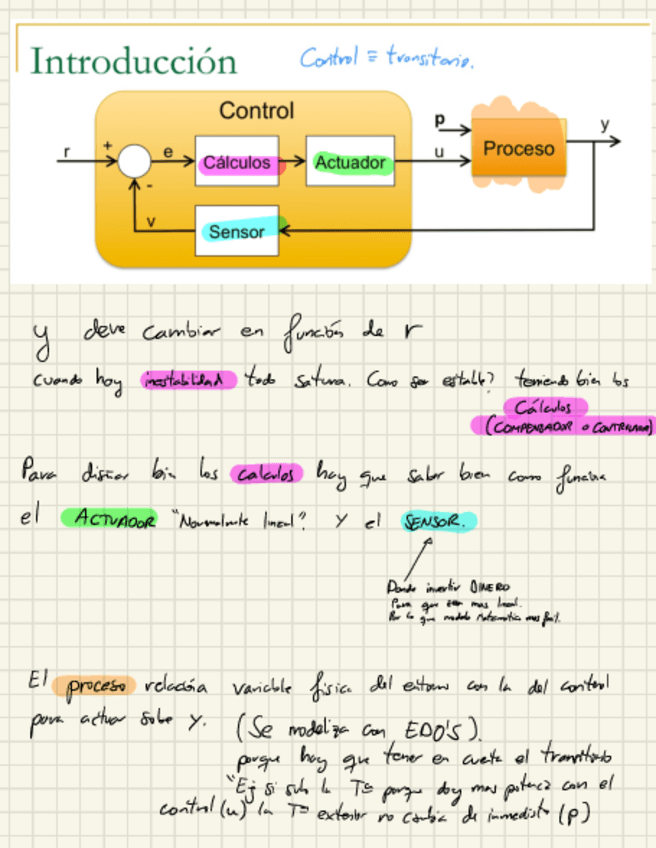 Introducción
Control ≡ transitorio.
Control
r + e Cálculos Actuador u p Proceso y
-
v Sensor
y deve cambiar en función de r
cuando hay inestabilidad todo satura. Como ser estable? teniendo bien los
Cálculos
(COMPENSADOR o CONTROLADOR)
Para diseñar bien los calculos hay que saber bien como funciona
el ACTUADOR "Normalmente lineal"? y el SENSOR.
Donde invertir DINERO
Para que sea mas lineal.
Por lo que modelo Matematico mas facil.
El proceso relaciona variable fisica del entorno con la del control
para actuar sobre y. (Se modeliza con EDO'S).
porque hay que tener en cuenta el transitorio
"Ej si sube la Tª porque doy mas potencia con el
control (u) la Tª exterior no cambia de inmediato (p)